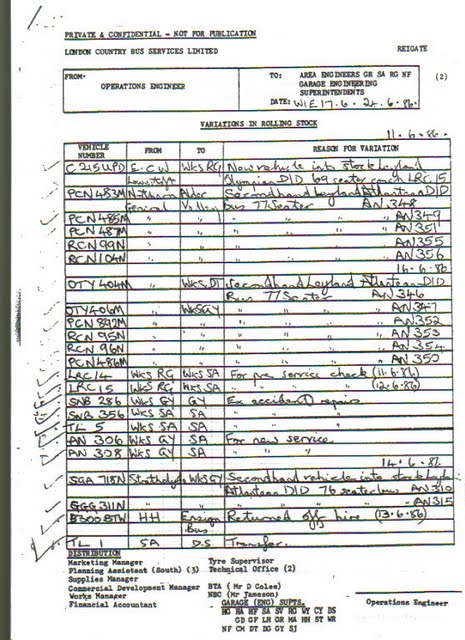 PRIVATE & CONFIDENTIAL - NOT FOR PUBLICATION
LONDON COUNTRY BUS SERVICES LIMITED REIGATE
FROM: OPERATIONS ENGINEER
TO: AREA ENGINEERS GR SA RG NF (2)
GARAGE ENGINEERING
SUPERINTENDENTS
DATE: W/E 17.6. - 24.6.86.
VARIATIONS IN ROLLING STOCK
11.6.86.
VEHICLE NUMBER FROM TO REASON FOR VARIATION
C215UPD E.C.W Wks RG New vehicle into stock Leyland
Lowestoft Olympian DID 69 seater coach LRC 15
PCN 483M Northern Alder Secondhand Leyland Atlantean DID
General Valley Bus 77 Seater AN 348
PCN 485M " " " " AN 349
PCN 487M " " " " AN 351
RCN 99N " " " " AN 355
RCN 104N " " " " AN 356
16.6.86
OTY 404M " WKS DT Secondhand Leyland Atlantean DID
Bus 77 Seater AN 346
OTY 406M " WKS GY " " AN 347
PCN 892M " " " " AN 352
RCN 95N " " " " AN 353
RCN 96N " " " " AN 354
PCN 486M " " " " AN 350
LRC 14 Wks RG Wks SA For pre service check (11.6.86)
LRC 15 Wks RG Wks SA " " (12.6.86)
SNB 286 Wks GY GY Ex accident repair
SNB 356 Wks SA SA " "
TL 5 Wks SA SA " "
AN 306 Wks GY SA For new service
AN 308 Wks GY SA " "
14.6.86
SGA 718N Strathclyde Wks GY Secondhand vehicle into stock Leyland
Atlantean DID 76 seater bus AN 310
GGG 311N " " " " AN 315
B300 BTW HH Ensign Bus Returned off hire (13.6.86)
TL 1 SA DS Transfer.
DISTRIBUTION
Marketing Manager Tyre Supervisor
Planning Assistant (South) (3) Technical Office (2)
Supplies Manager
Commercial Development Manager BTA (Mr D Coles)
Works Manager NBC (Mr Jameson)
Financial Accountant GARAGE (ENG) SUPTS. Operations Engineer
HG HA HF SA SV RG WY CY DS
GD GF LH GR MA HH ST WR
NF CM DT DG GY SJ